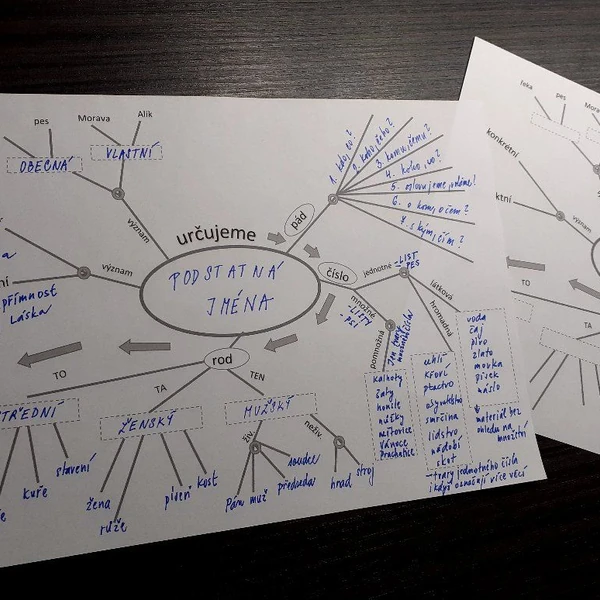 pes
Morava
Alík
OBECNÁ
VLASTNÍ
význam
význam
přímnost
Láska
určujeme
PODSTATNÁ
JMÉNA
pád
1. kdo, co?
2. koho, čeho?
3. komu, čemu?
4. koho, co?
5. oslovujeme, voláme!
6. o kom, o čem?
7. s kým, čím?
číslo
jednotné
-LIST
PES
množné
-LISTY
-PSI
pomnožná
jen tvary
množného čísla
kalhoty
šaty
housle
nůžky
neštovice
Vánoce
Prachatice
hromadná
uhlí
křoví
ptactvo
obyvatelstvo
smrčina
lidstvo
nádobí
skot
-tvary jednotného čísla
i když označují více věcí
látková
voda
čaj
pivo
zlato
mouka
písek
máslo
materiál bez
ohledu na
množství
rod
TO
TA
TEN
STŘEDNÍ
ŽENSKÝ
MUŽSKÝ
kuře
stavení
žena
růže
píseň
kost
živ.
neživ.
Pán
muž
předseda
soudce
hrad
stroj
řeka
pes
konkrétní
význam
TO